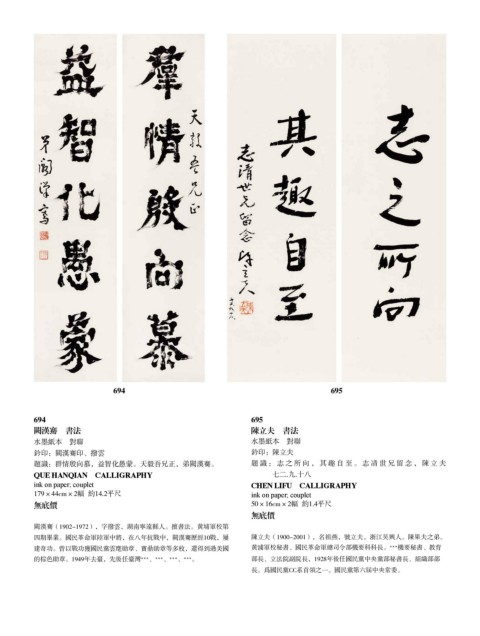 羣情殷向慕
天毅吾兄正
益智化愚蒙
弟闕漢騫
志之所向
其趣自至
志清世兄留念 陳立夫
七二、九、十八
694
695
694
闕漢騫　書法
水墨紙本　對聯
鈐印：闕漢騫印、撥雲
題識：群情殷向慕，益智化愚蒙。天毅吾兄正，弟闕漢騫。
QUE HANQIAN　CALLIGRAPHY
ink on paper; couplet
179 × 44cm × 2幅　約14.2平尺
無底價
闕漢騫（1902~1972），字撥雲，湖南寧遠縣人。擅書法。黃埔軍校第
四期畢業。國民革命軍陸軍中將，在八年抗戰中，闕漢騫歷經10戰，屢
建奇功。曾以戰功獲國民黨雲麾勛章、寶鼎勛章等多枚，還得到過美國
的棕色勛章。1949年去臺，先後任臺灣***、***、***、***。
695
陳立夫　書法
水墨紙本　對聯
鈐印：陳立夫
題識：志之所向，其趣自至。志清世兄留念，陳立夫
七二.九.十八
CHEN LIFU　CALLIGRAPHY
ink on paper; couplet
50 × 16cm × 2幅　約1.4平尺
無底價
陳立夫（1900~2001），名祖燕，號立夫，浙江吳興人。陳果夫之弟。
黃埔軍校秘書、國民革命軍總司令部機要科科長。***機要秘書、教育
部長、立法院副院長，1928年後任國民黨中央黨部秘書長、組織部部
長。爲國民黨CC系首領之一。國民黨第六屆中央常委。